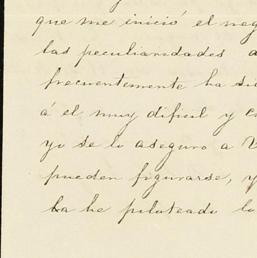 que me inició el neg
las peculiaridades a
frecuentemente ha sid
á el muy dificil y co
yo se lo aseguro a V
pueden figurarse, y
ha he piloteado lo